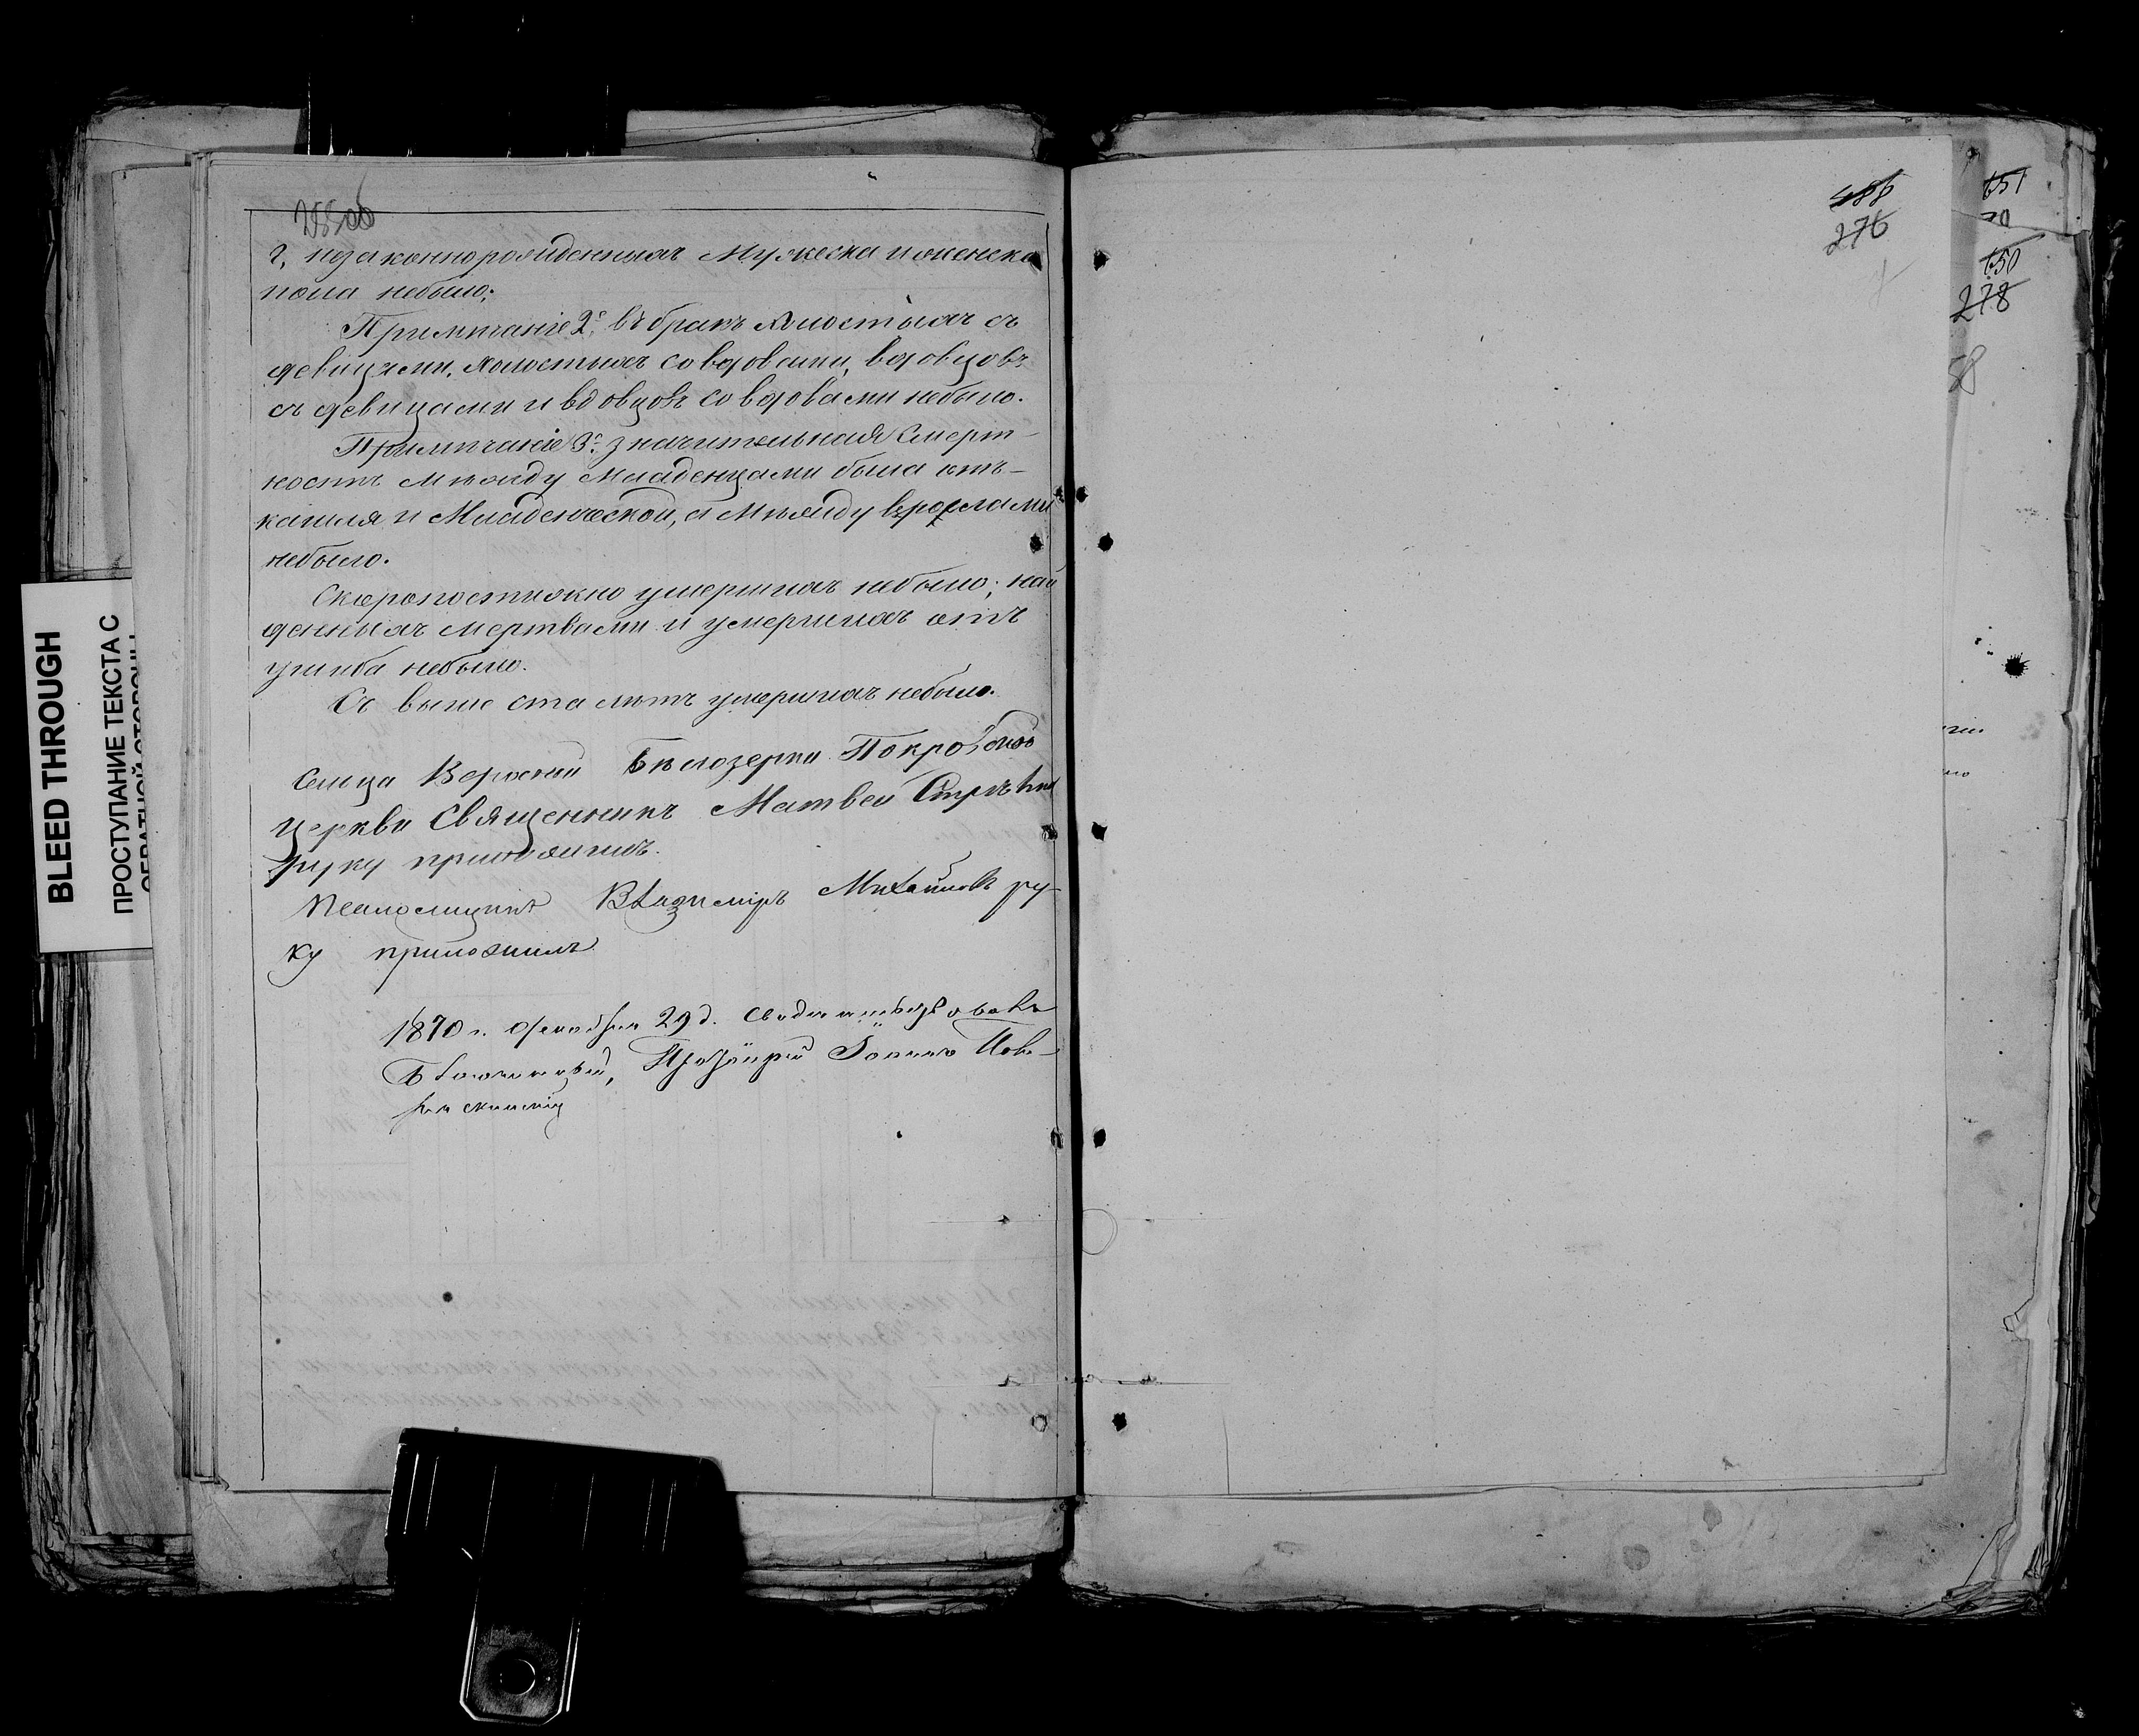 г, незаконнорожденныхъ Мужеска и женска
пола небыло;
Примѣчаніе 2е, въ бракъ холостыхъ съ
девицами, холостыхъ со вдовами, вдовцовъ
съ девицами и вдовцовъ со вдовами небыло.
Примѣчаніе 3е. значительная Смерт-
ность между Младенцами была отъ-
кашля и Младенческой, а между взрослами
небыло.
Скоропостижно умершихъ небыло; най
денныхъ мертвами и умершихъ отъ
ушиба небыло.
Съ выше ста лѣтъ умершихъ небыло.
Сельца Верхней Бѣлозерки Покровской
Церкви Священникъ Матвей
руку приложилъ.
Псаломщикъ Владиміръ Михайловъ ру-
ку приложилъ
1870 г. 29 д.
Благочинный, Протоіерей Іоаннъ
486
276
651
650
278
58
BLEED THROUGH
ПРОСТУПАНИЕ ТЕКСТА С
ОБРАТНОЙ СТОРОНЫ